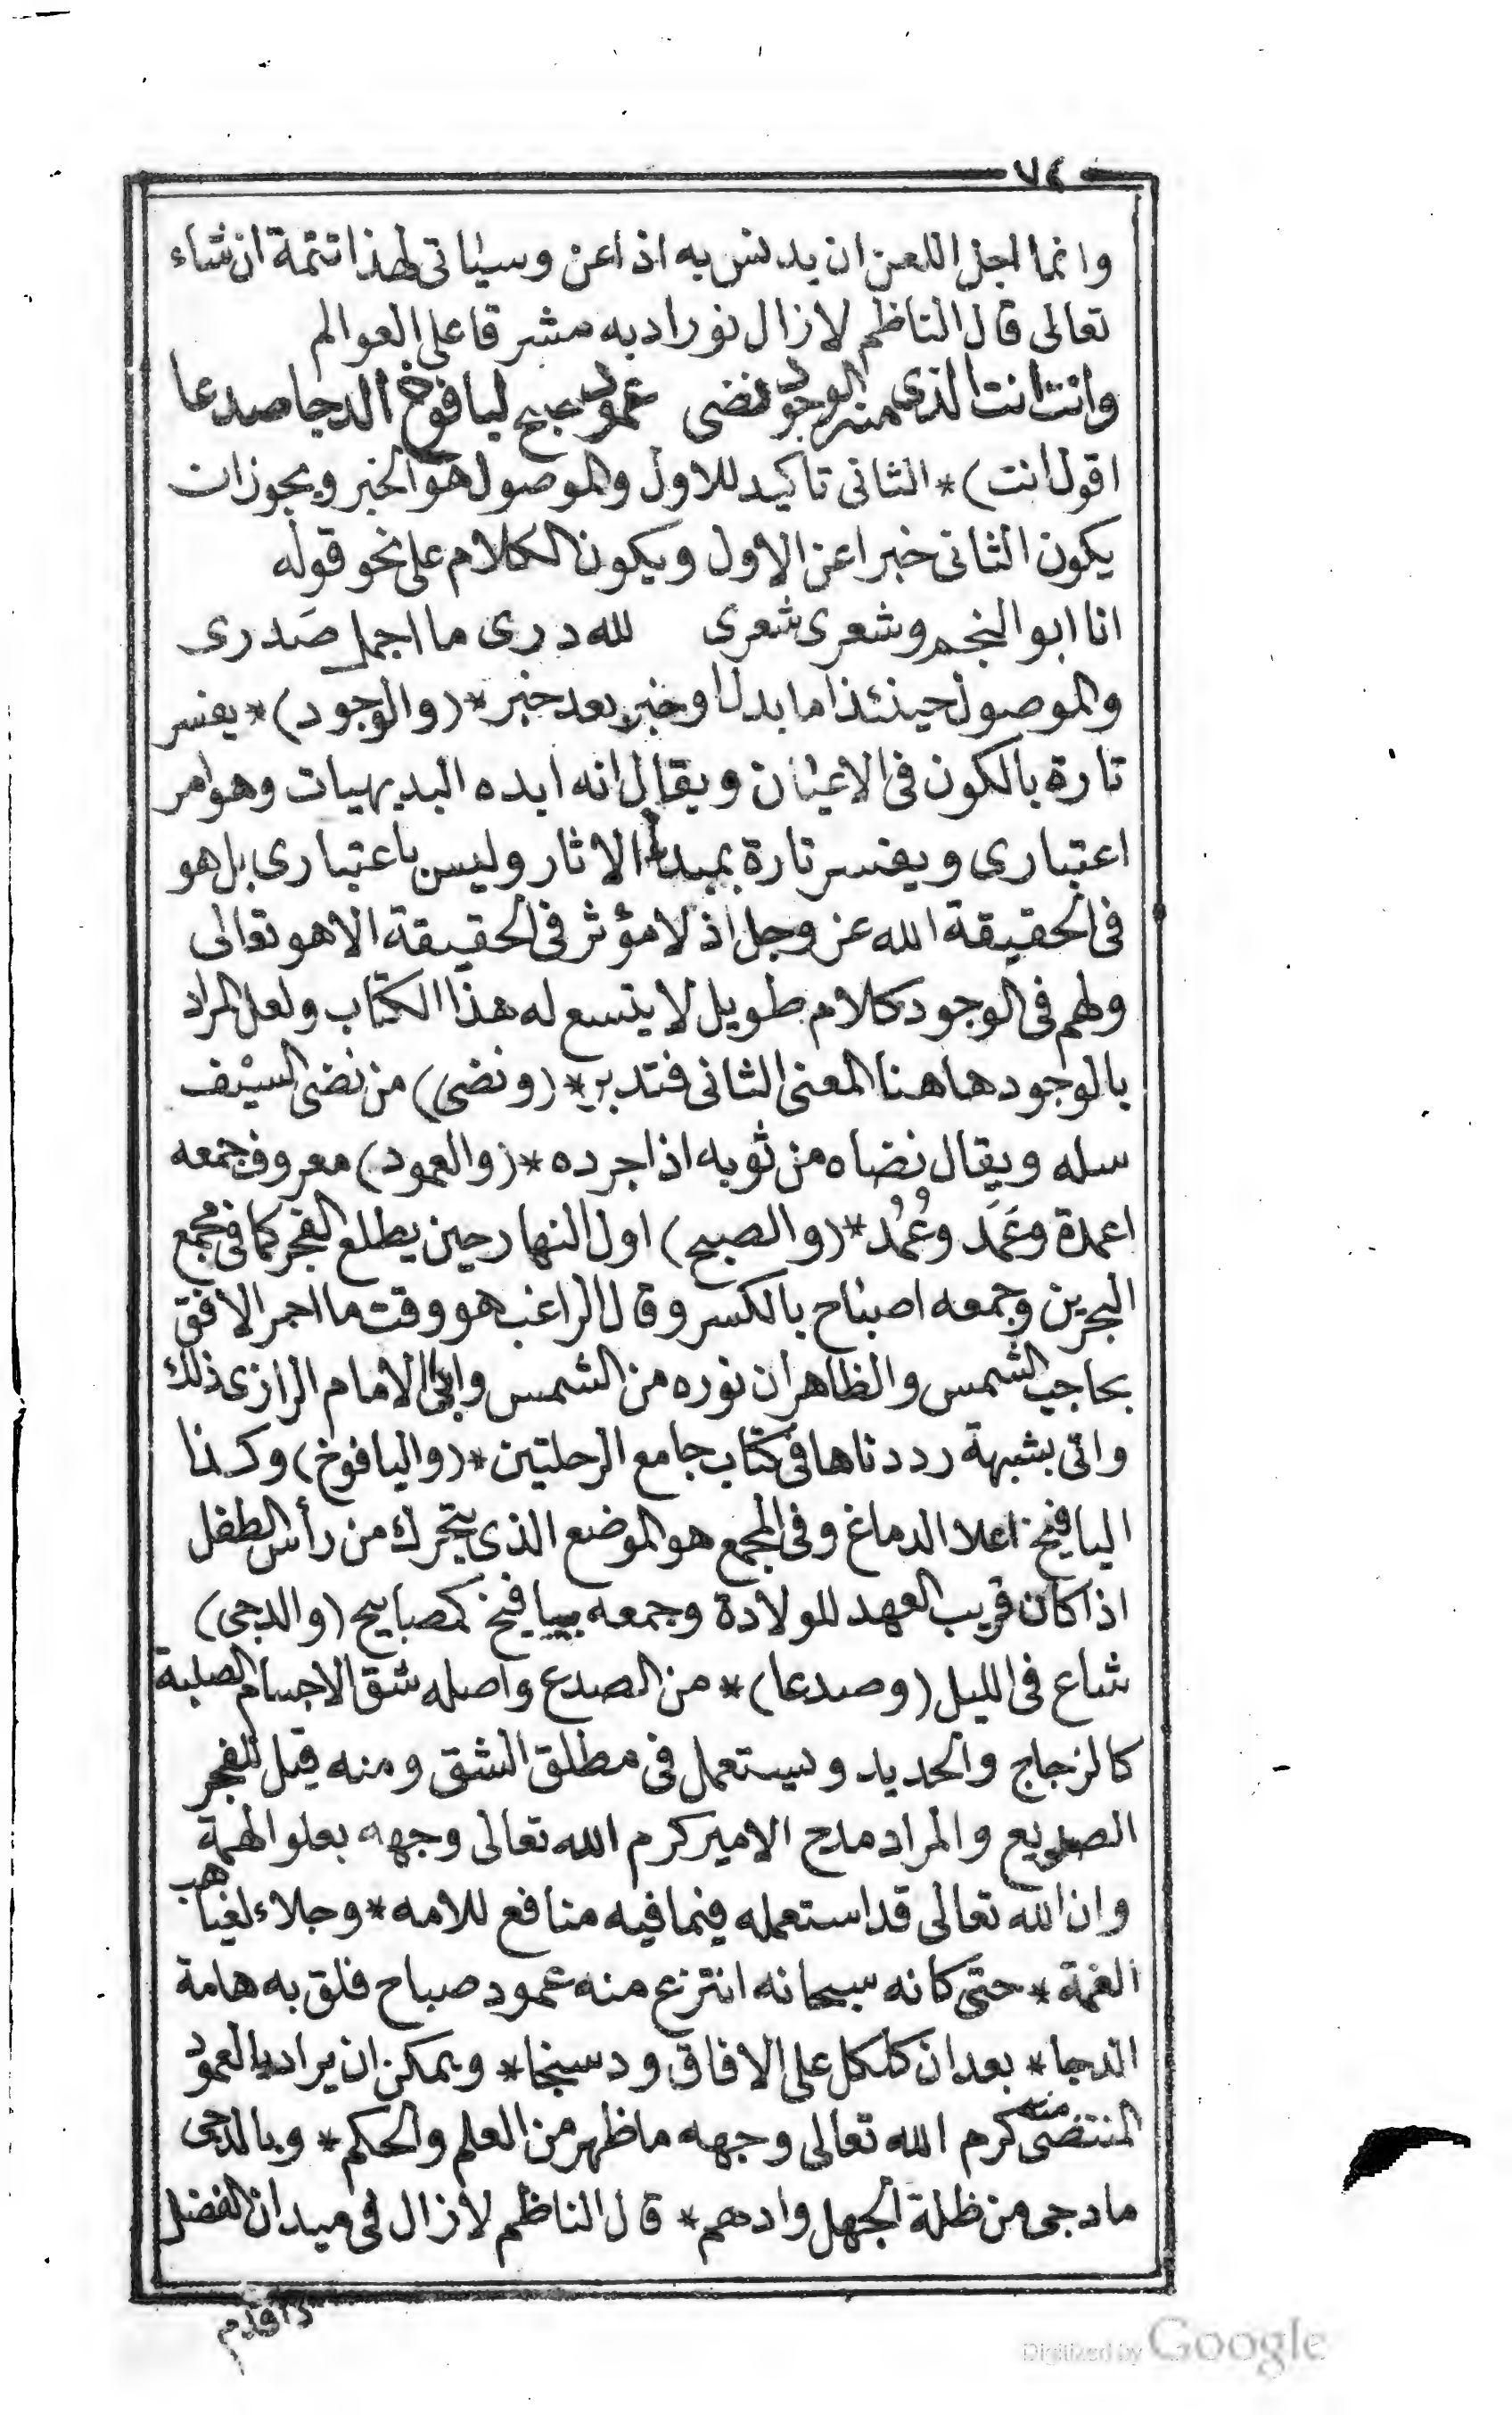 ٧٤
وانما اجل اللعن ان يدنس به اذا عن وسياتى لهذا تتمة ان شاء
تعالى قال الناظم لا زال نور ادبه مشرقا على العوالم
وانت انت الذى منه الوجود نضى عمود صبح ليافوخ الدجا صدعا
اقول انت)* الثانى تاكيد للاول والموصول هو الخبر ويجوز ان
يكون الثانى خبرا عن الاول ويكون الكلام على نحو قوله
انا ابو النجم وشعرى شعرى لله درى ما اجمل صَدرى
والموصول حينئذ اما بدل او خبر بعد خبر* (والوجود)* يفسر
تارة بالكون فى الاعيان ويقال انه ابده البديهيات وهو امر
اعتبارى ويفسر تارة بمبدأ الاثار وليس باعتبارى بل هو
فى الحقيقة الله عز وجل اذ لا مؤثر فى الحقيقة الا هو تعالى
ولهم فى الوجود كلام طويل لا يتسع له هذا الكتاب ولعل المراد
بالوجود هاهنا المعنى الثانى فتدبر* (ونضى) من نضى السيف
سله ويقال نضاه من ثوبه اذا جرده* (والعمود) معروف جمعه
اعمدة وعَمَد وعُمُد* (والصبح) اول النهار حين يطلع الفجر كما فى مجمع
البحرين وجمعه اصباح بالكسر وقال الراغب هو وقت ما احمر الافق
بحاجب الشمس والظاهر ان نوره من الشمس وابى الامام الرازى ذلك
واتى بشبهة رددناها فى كتاب جامع الرحلتين* (واليافوخ) وكذا
اليافيخ اعلا الدماغ وفى المجمع هو الموضع الذى يتحرك من رأس الطفل
اذا كان قريب العهد للولادة وجمعه ييافيخ كمصابيح (والدجى)
شاع فى الليل (وصدعا)* من الصدع واصله شق الاجسام الصلبة
كالزجاج والحديد ويستعمل فى مطلق الشق ومنه قيل للفجر
الصديع والمراد مدح الامير كرم الله تعالى وجهه بعلو الهمة
وان الله تعالى قد استعمله فيما فيه منافع للامه* وجلاء لغياهب
الغمة* حتى كانه سبحانه انتزع منه عمود صباح فلق به هامة
الدجا* بعد ان كلكل على الافاق ودسجا* ويمكن ان يراد بالعمود
المنتضى منه كرم الله تعالى وجهه ما ظهر من العلم والحكم* وبالدجى
ما دجى من ظلمة الجهل وادهم* قال الناظم لا زال فى ميدان الفضل
Digitized by Google